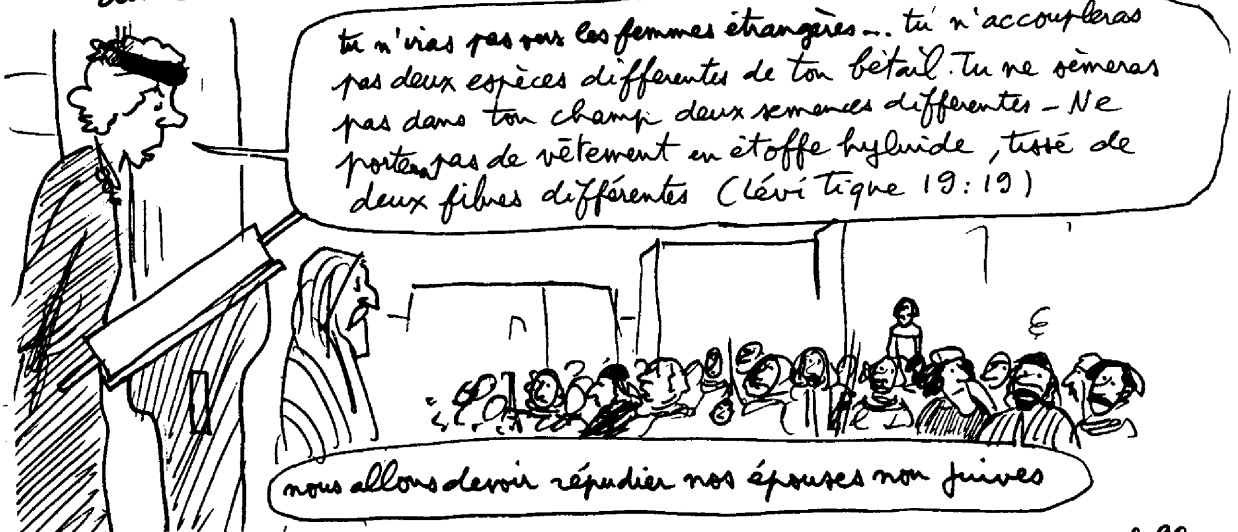 tu n'iras pas vers les femmes étrangères... tu n'accoupleras
pas deux espèces differentes de ton bétail. Tu ne sèmeras
pas dans ton champ deux semences differentes - Ne
porteras pas de vêtement en étoffe hybride, tissé de
deux fibres différentes (Lévitique 19:19)
nous allons devoir répudier nos épouses non juives